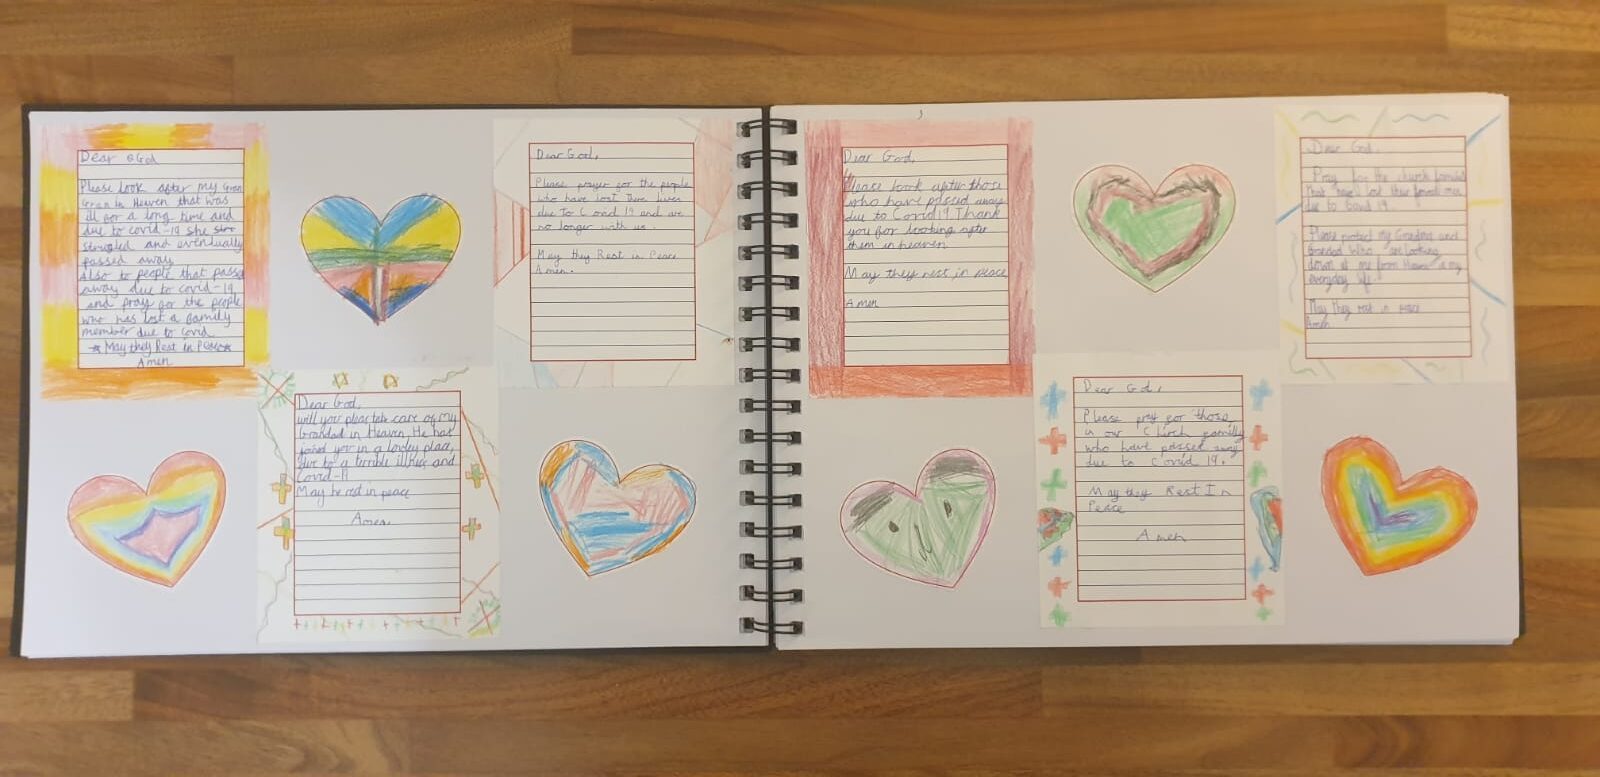 Dear God
Please look after my Gran
Gran in Heaven that was
ill for a long time and
due to covid-19 she stro
struggled and eventually
passed away
also to people that passed
away due to covid-19
and pray for the people
who has lost a family
member due to covid
May they Rest in Peace
Amen
Dear God,
will you please take care of my
Grandad in Heaven. He has
joined you in a lovley place,
due to a terrible illness and
Covid-19
May he rest in peace
Amen.
Dear God,
Please prayer for the people
who have lost there lives
due to Covid 19 and are
no longer with us.
May they Rest in Peace
Amen.
Dear God,
Please look after those
who have passed away
due to Covid 19. Thank
you for looking after
them in heaven
May they rest in peace
Amen
Dear God,
Please pray for those
in our Church family
who have passed away
due to Covid 19.
May they Rest In
Peace
Amen
Dear God,
Pray for the church families
That have lost their loved ones
due to Covid 19.
Please protect my Grandma and
Grandad Who are looking
down at me from Heaven in my
everyday life.
May they rest in peace
Amen